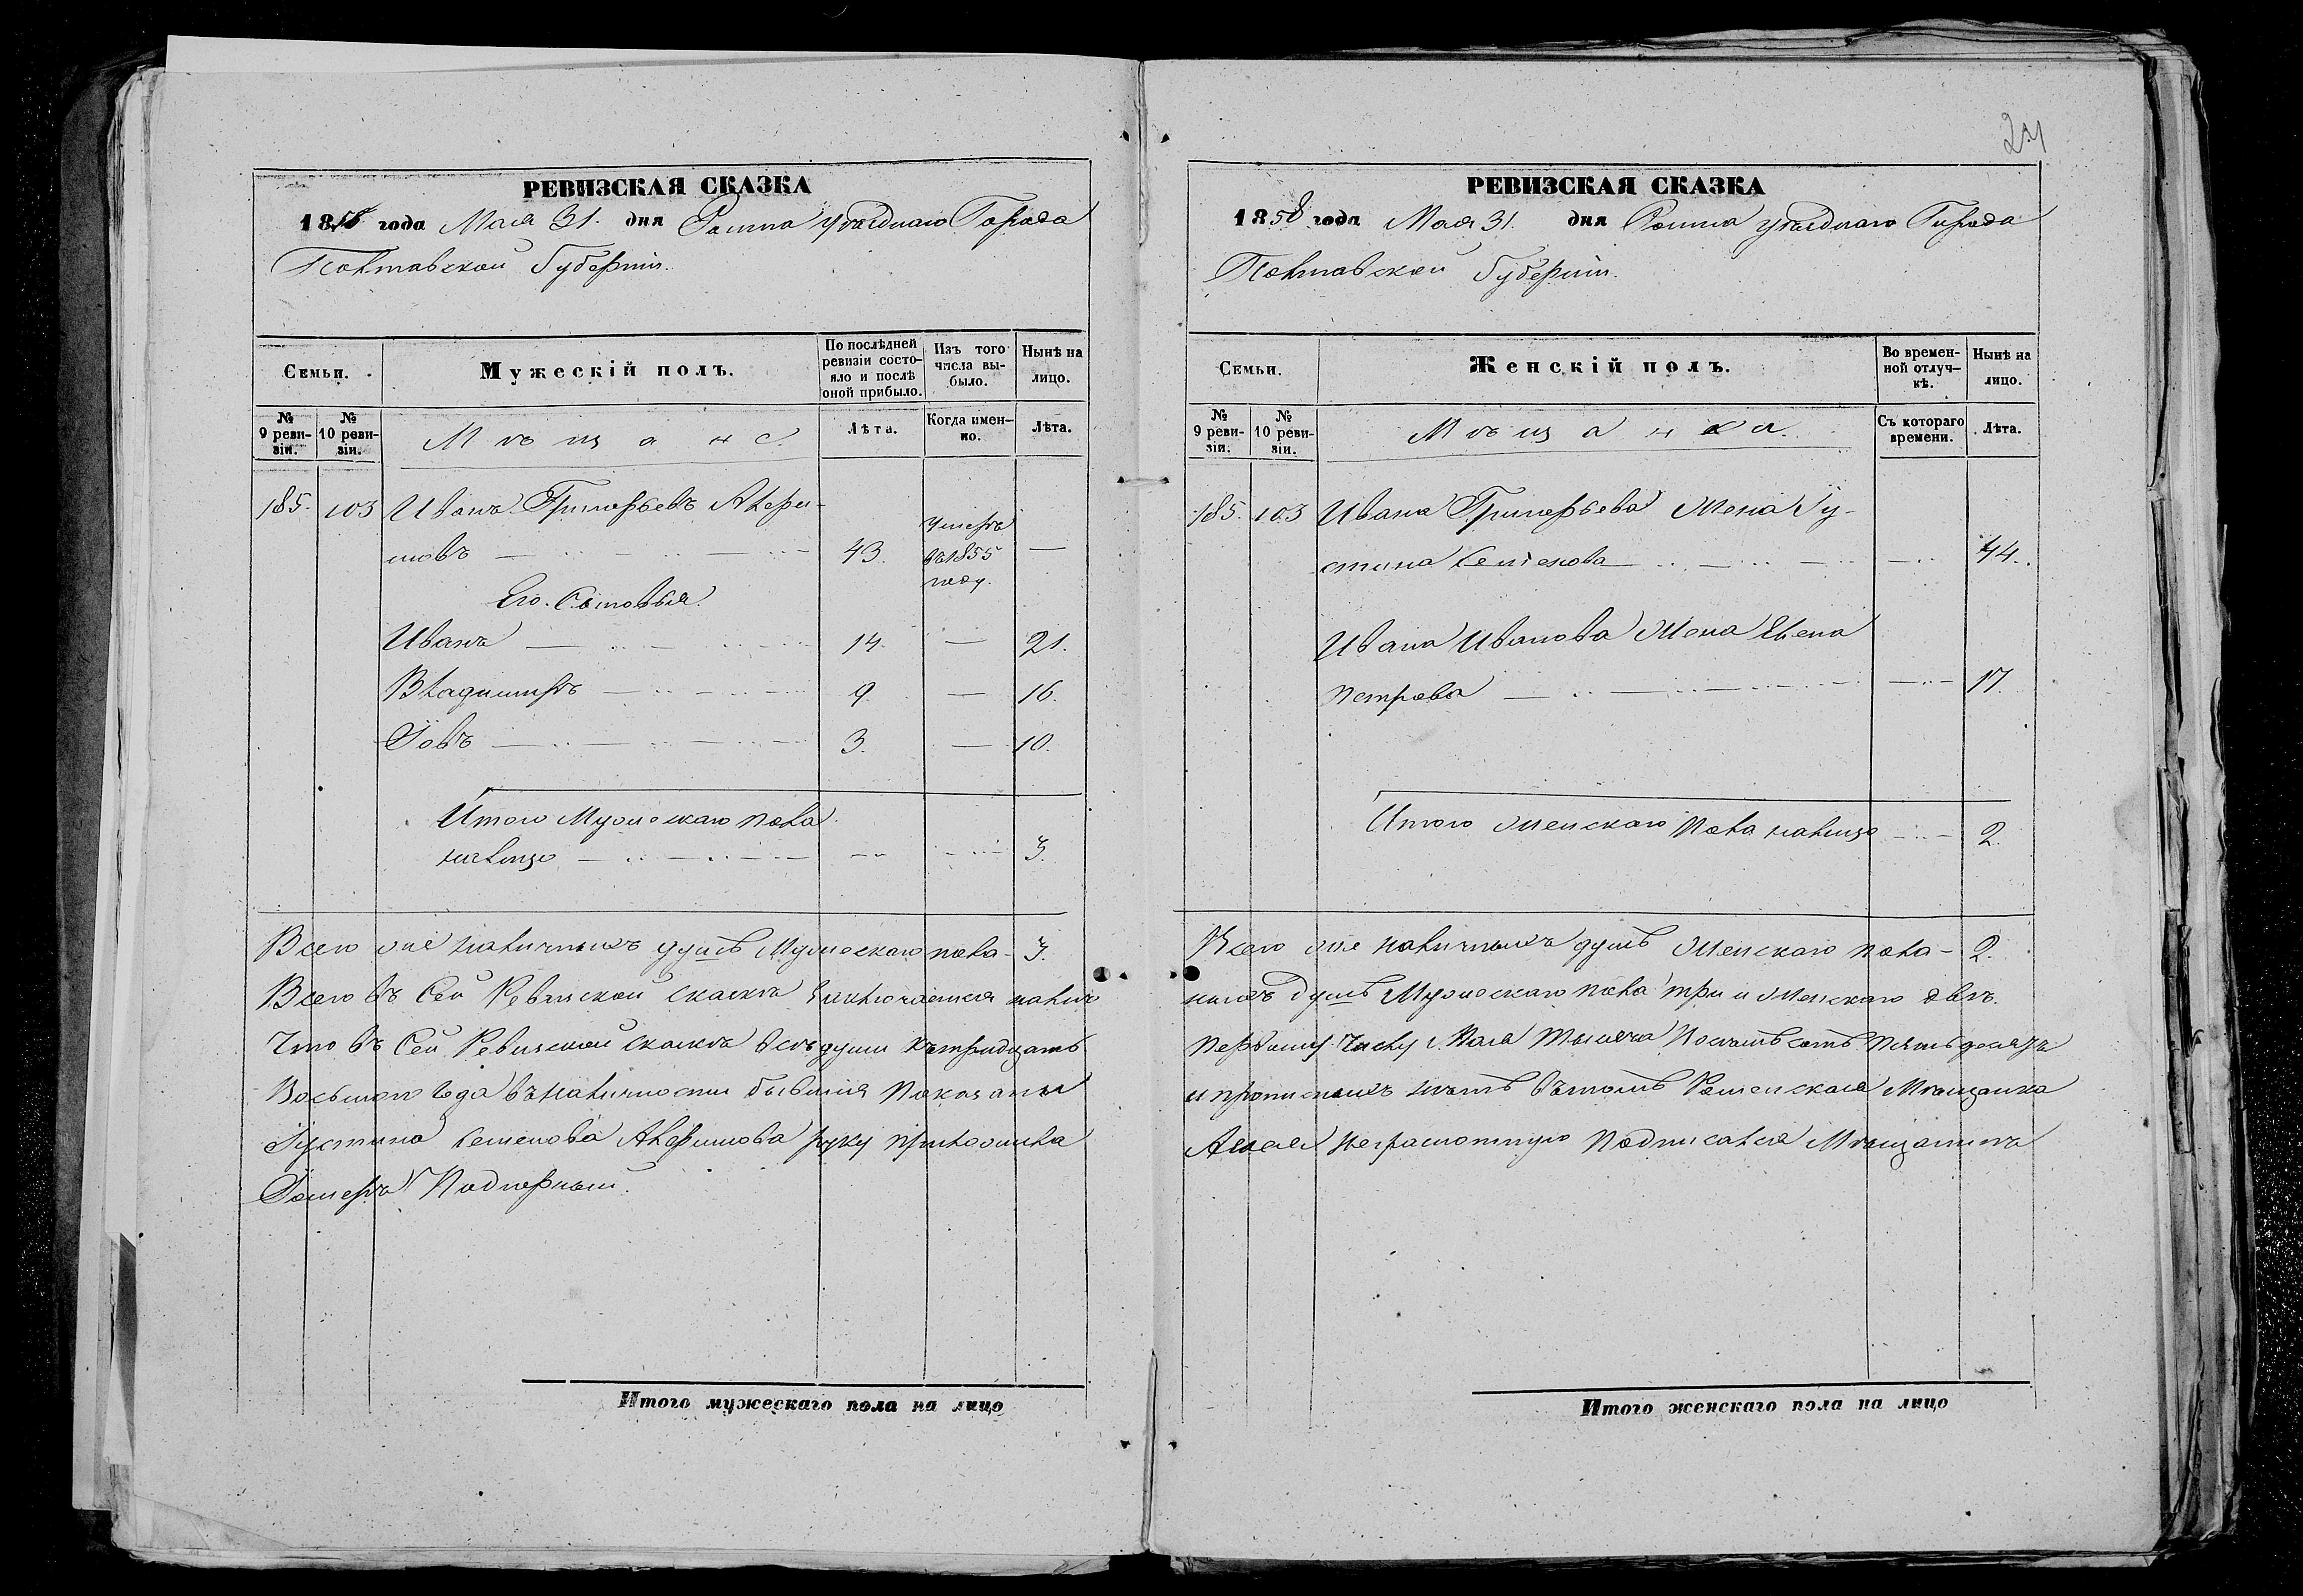 24
РЕВИЗСКАЯ СКАЗКА
1858 года Мая 31. дня Ромна уѣзднаго Города
Полтавской Губерніи.
Семьи.
Мужескій полъ.
По послѣдней ревизіи состояло и послѣ оной прибыло.
Изъ того числа выбыло.
Нынѣ на лицо.
№ 9 ревизіи.
№ 10 ревизіи.
Мѣщане.
Лѣта.
Когда именно.
Лѣта.
185. 103 Иванъ Григорьевъ Алфи-
мовъ 43. Умеръ въ 1855 году. —
Его Сыновья.
Иванъ 14. — 21.
Владимиръ 9. — 16.
Іовъ 3. — 10.
Итого Мужескаго пола
налицо 3.
Всего же наличныхъ душъ Мужескаго пола - 3.
Всего въ Сей Ревизской сказкѣ заключается налич
Что въ Сей Ревизской сказкѣ всѣ души къ тридцать
Восьмого года въ наличности бывшія показаны
Іустина Семенова Алфимова руку приложила
Подгорный.
Итого мужескаго пола на лицо
РЕВИЗСКАЯ СКАЗКА
1858 года Мая 31. дня Ромна уѣзднаго Города
Полтавской Губерніи.
Семьи.
Женскій полъ.
Во временной отлучкѣ.
Нынѣ на лицо.
№ 9 ревизіи.
№ 10 ревизіи.
Мѣщанка.
Съ котораго времени.
Лѣта.
185. 103 Ивана Григорьева Жена Іу-
стина Семенова 44.
Ивана Иванова Жена Елена
Петрова 17.
Итого Женскаго пола налицо 2.
Всего же наличныхъ душъ Женскаго пола - 2.
ныхъ душъ Мужескаго пола три и Женскаго двѣ.
первому числу Мая тысяча восемьсотъ пятьдесятъ
и прописныхъ нѣтъ въ томъ Роменская Мѣщанка
неграмотную подписался Мѣщанинъ
Итого женскаго пола на лицо